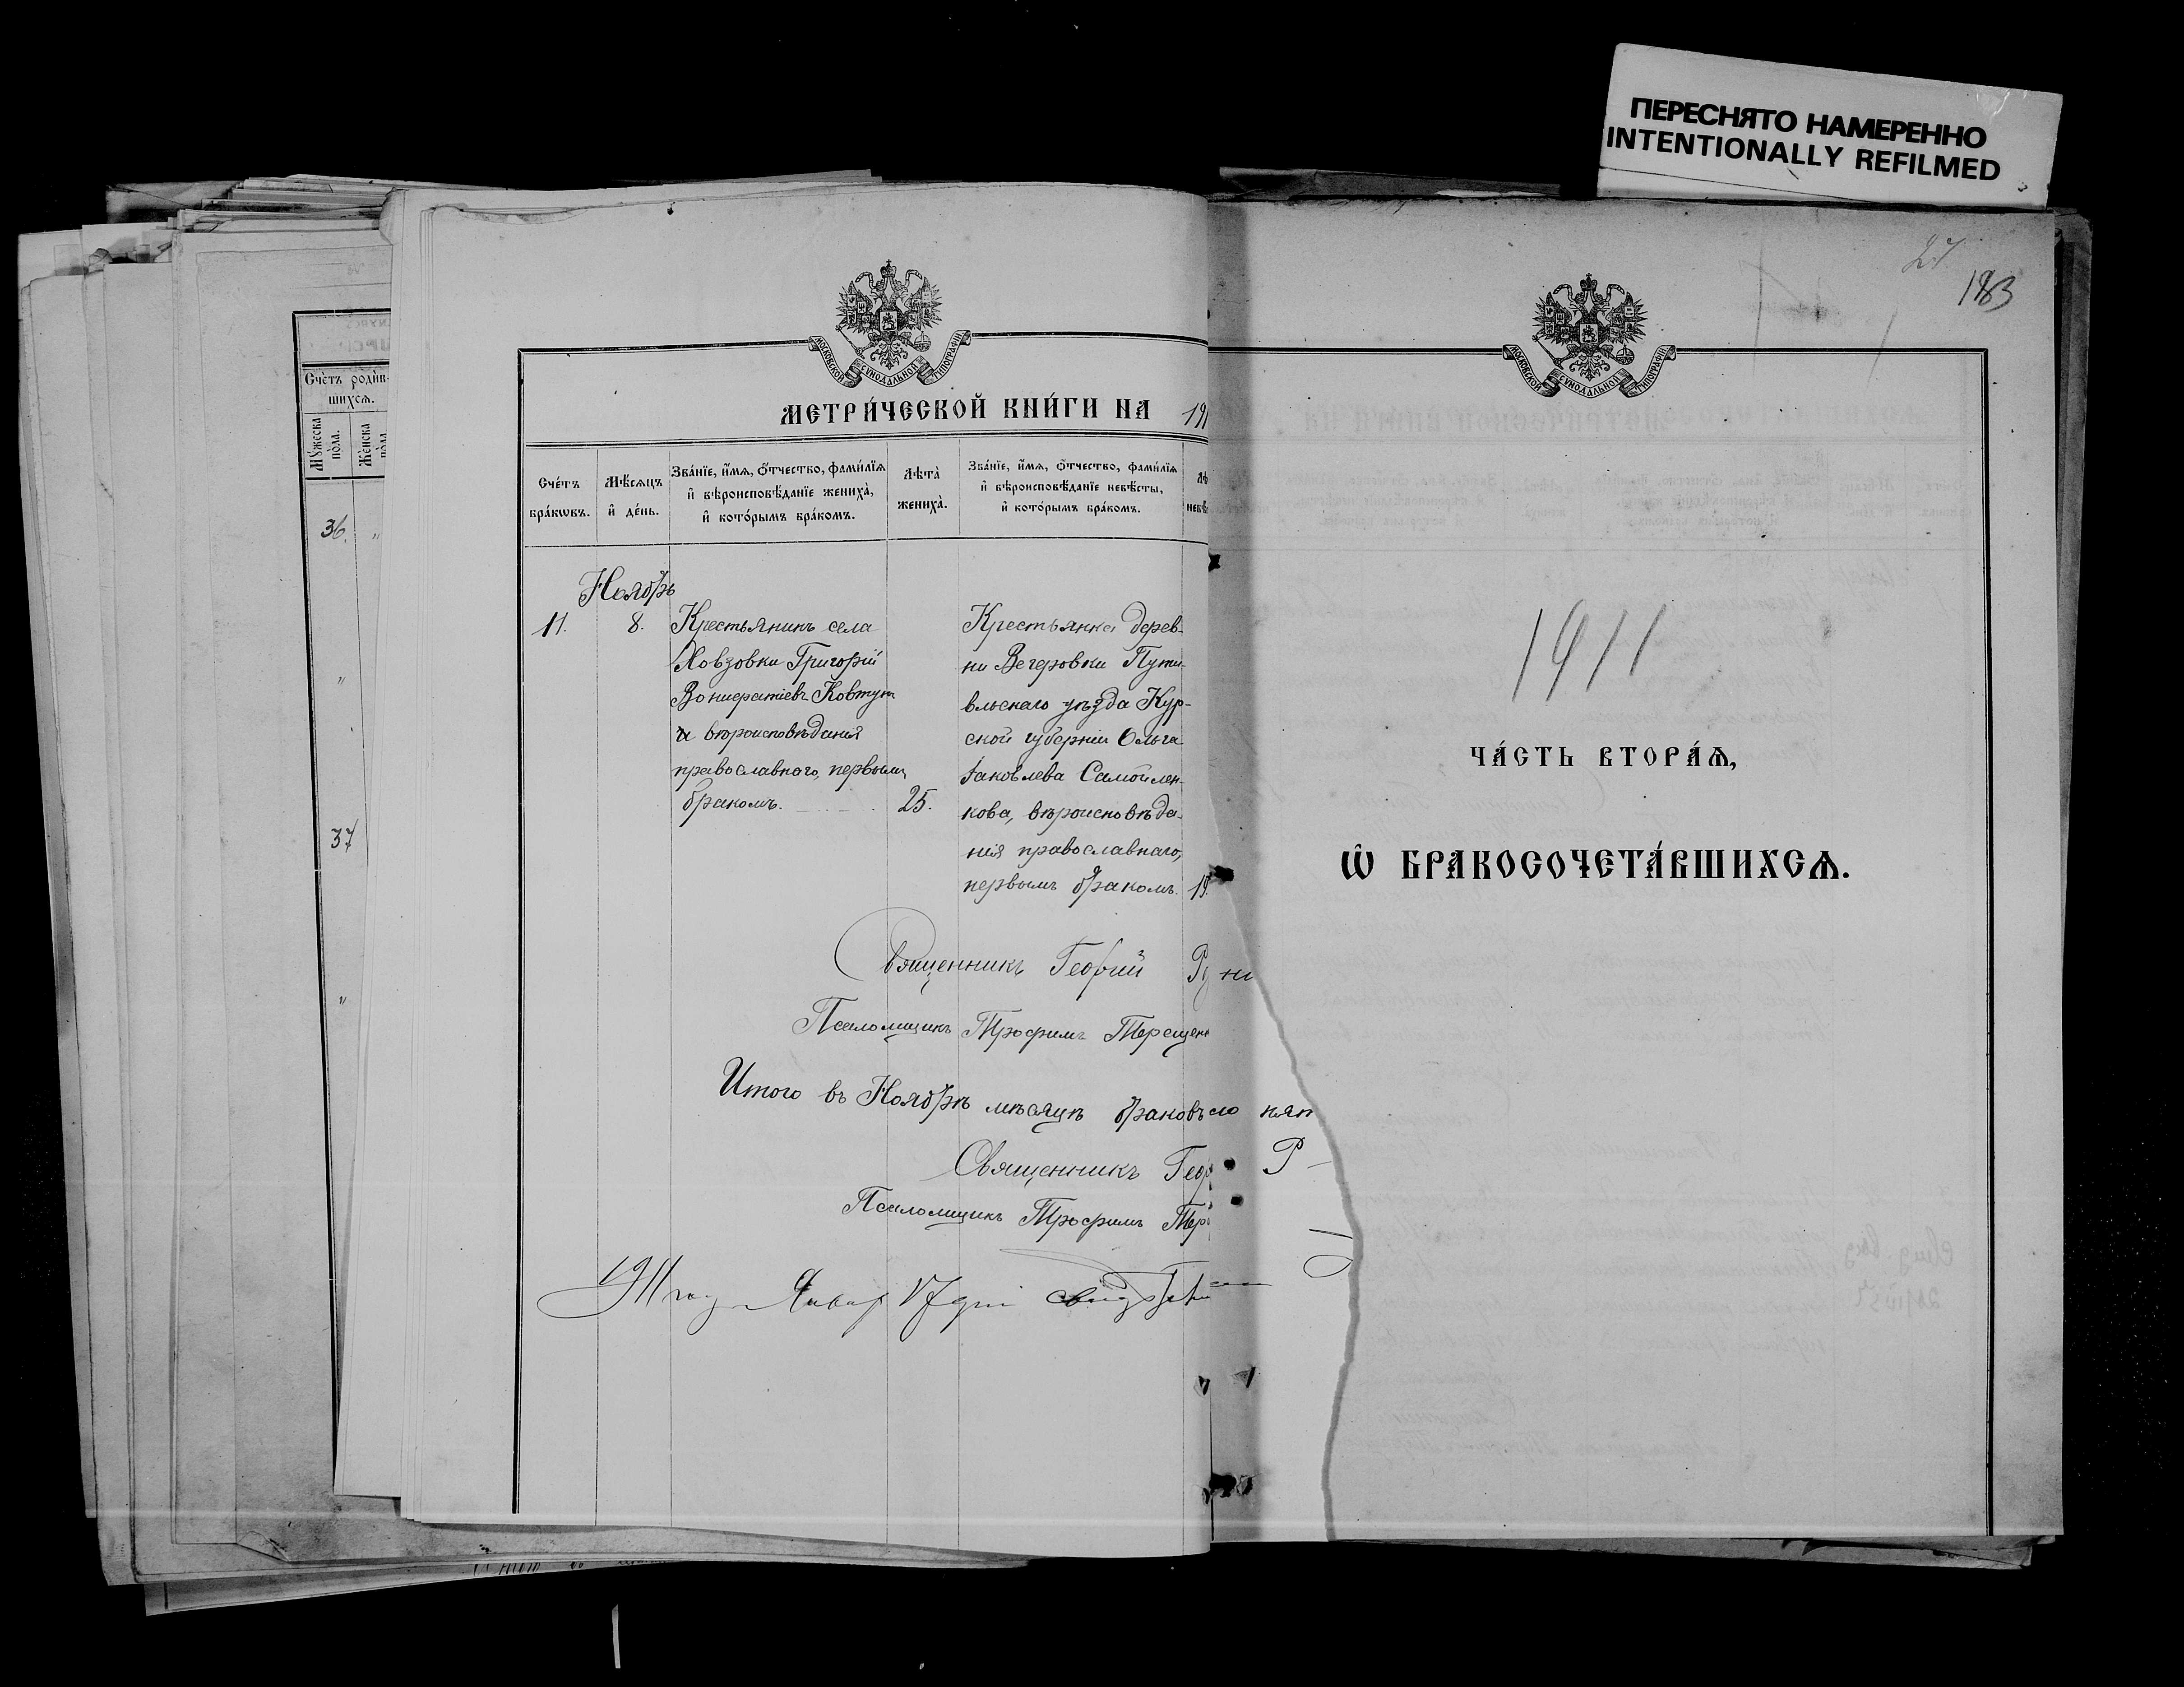 ПЕРЕСНЯТО НАМЕРЕННО
INTENTIONALLY REFILMED
27
183
Счетъ родив-
шихся.
Мужеска
пола.
Женска
пола
36.
37
МОСКОВСКОЙ СѴНОДАЛЬНОЙ ТИПОГРАФІИ
МЕТРИ́ЧЕСКОЙ КНИ́ГИ НА 191
Сче́тъ
бра́кѡвъ.
Мѣ́сяцъ
и҆ де́нь.
Зва́нїе, и҆́мѧ, ѻ҆́тчество, фами́лїѧ
и҆ вѣроисповѣ́данїе жениха̀,
и҆ кото́рымъ бра́комъ.
Лѣта̀
жениха̀.
Зва́нїе, и҆́мѧ, ѻ҆́тчество, фами́лїѧ
и҆ вѣроисповѣ́данїе невѣ́сты,
и҆ кото́рымъ бра́комъ.
Ноябрь
11.
8.
Крестьянинъ села
Ховзовки Григорій
Вонифатіевъ Ковтун
а вѣроисповѣданія
православнаго, первымъ
бракомъ.
25.
Крестьянка дерев-
ни Вегеровки Пути-
вльскаго уѣзда Кур-
ской губерніи Ольга
Іаковлева Самойлен-
кова, вѣроисповѣда-
нія православнаго,
первымъ бракомъ.
19.
Священникъ Георгій
Псаломщикъ Трофимъ Терещен
Итого въ Ноябрѣ мѣсяцѣ браковъ
Священникъ Геор
Псаломщикъ Трофимъ Тер
1911 Январ 17 дня
МОСКОВСКОЙ СѴНОДАЛЬНОЙ ТИПОГРАФІИ
1911
ЧА́СТЬ ВТОРА́Ѧ,
Ѡ҆ БРАКОСОЧЕТА́ВШИХСѦ.